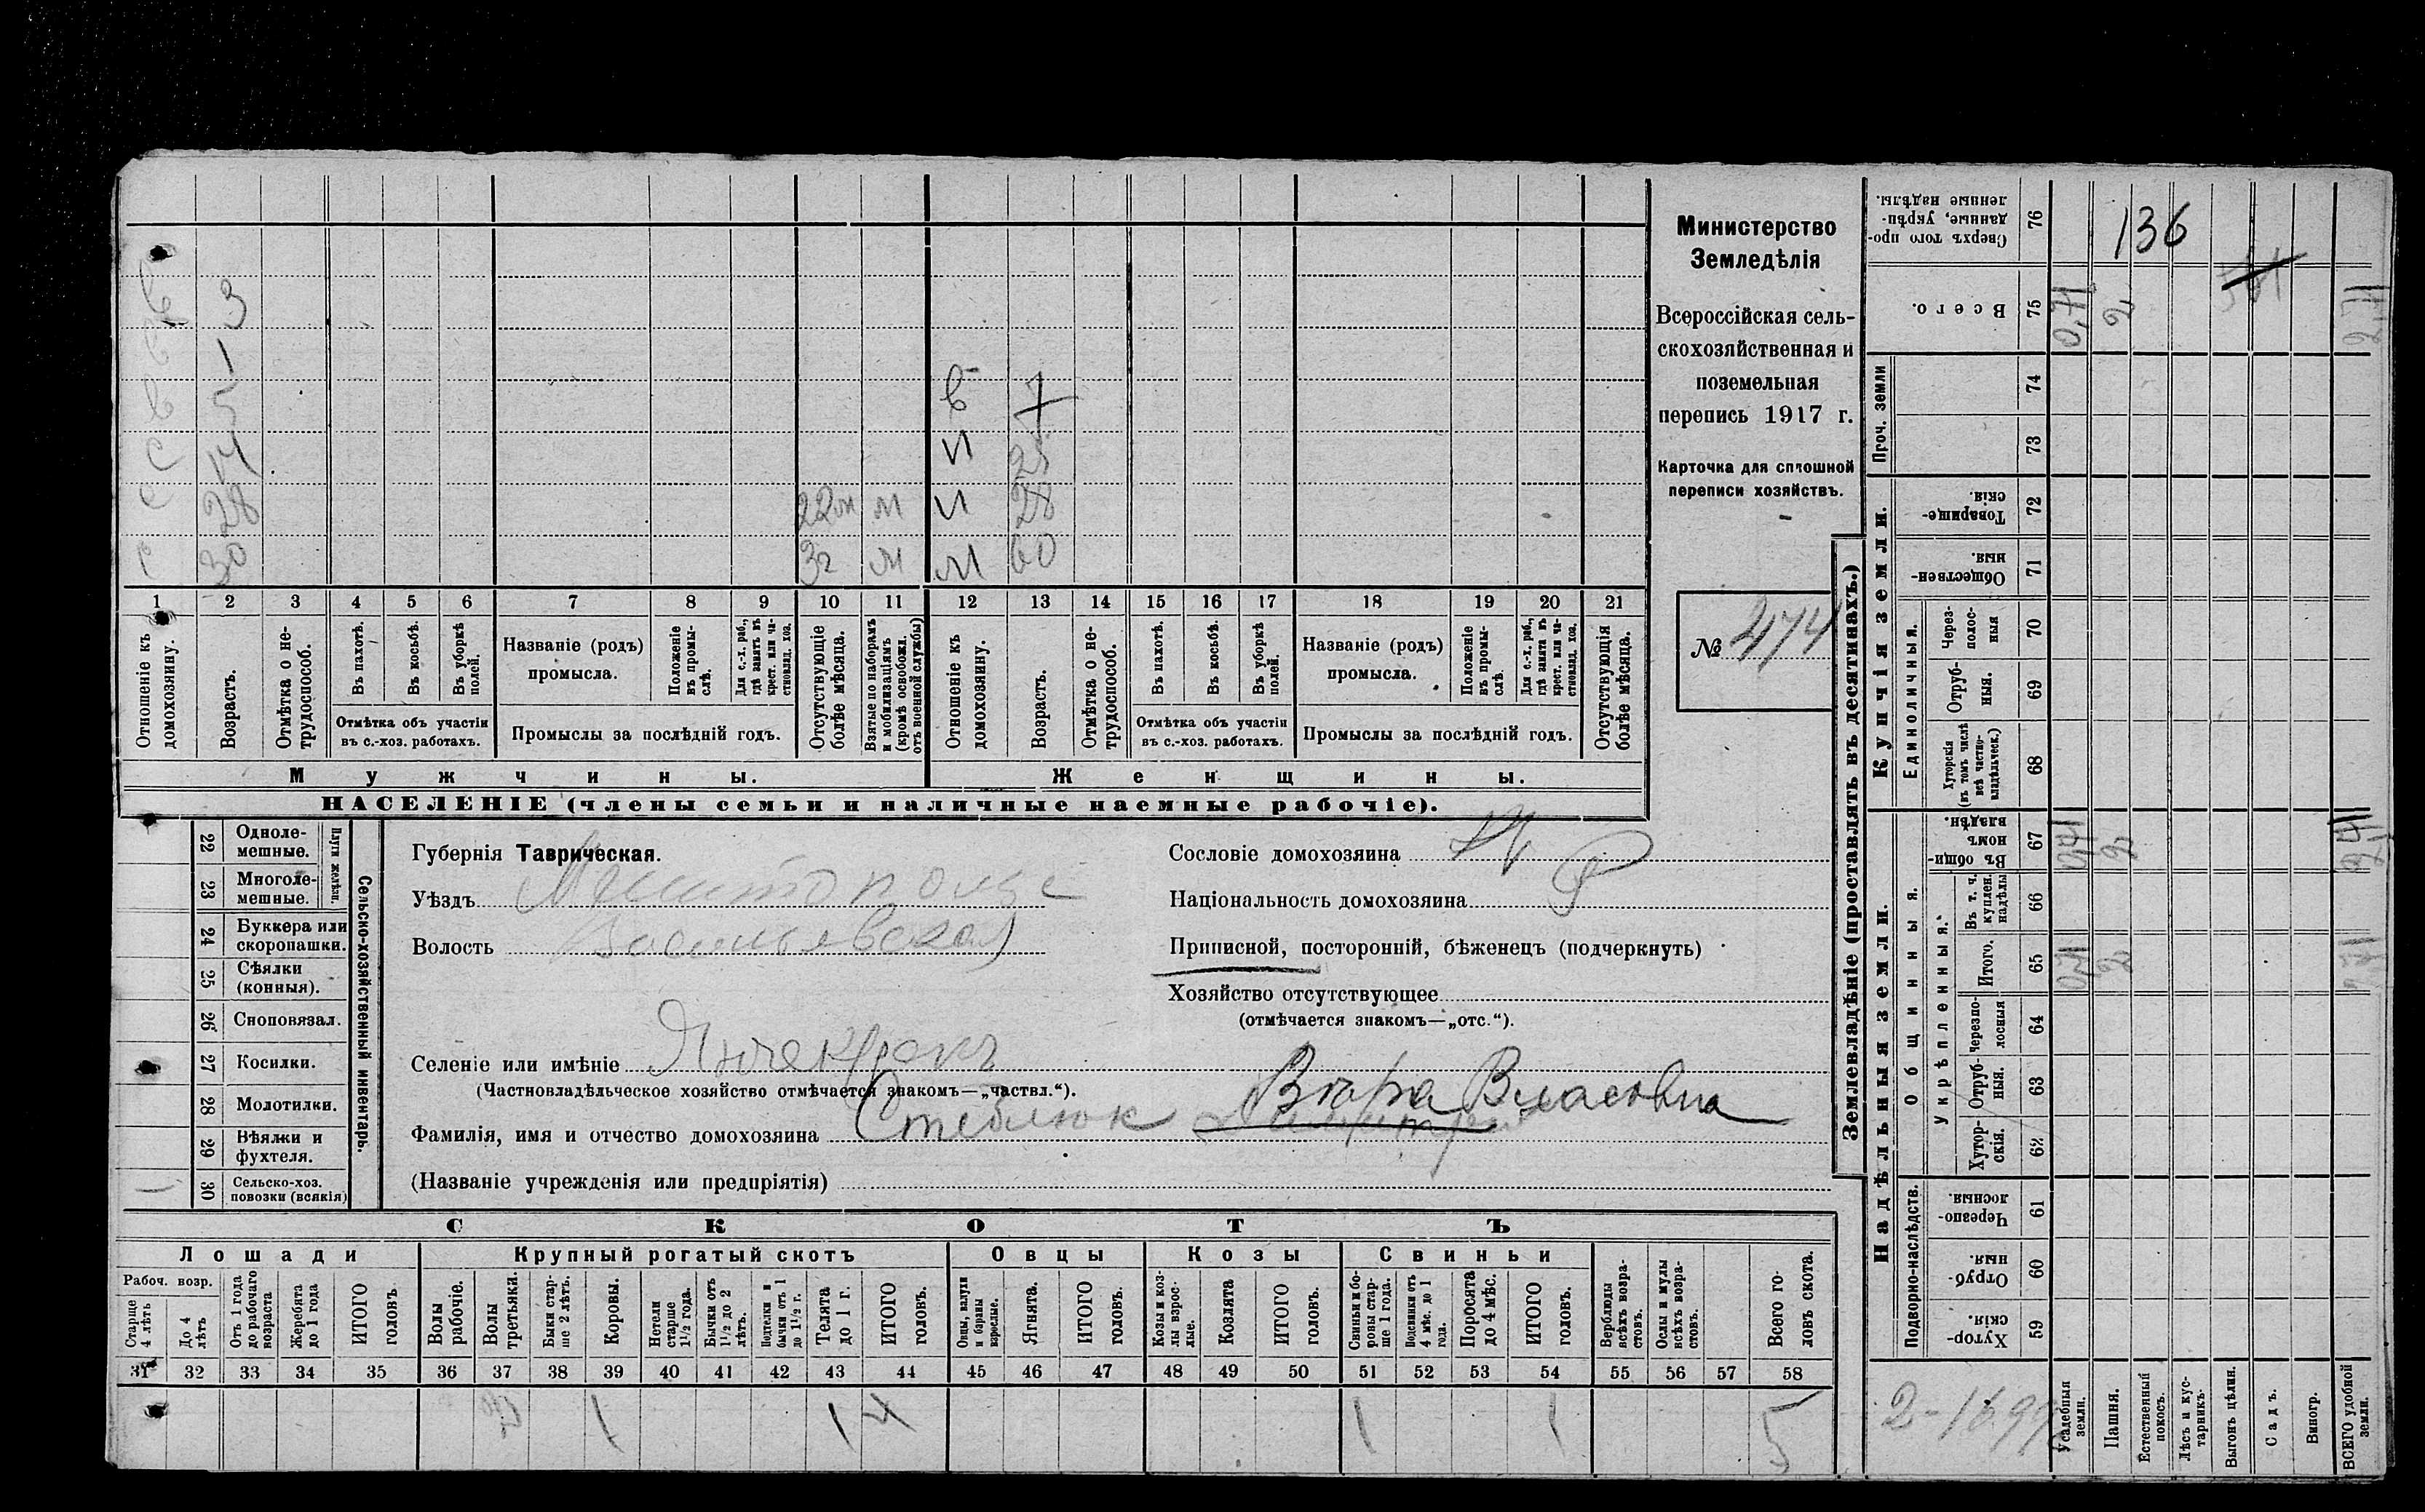 Министерство
Земледѣлія
Всероссійская сель-
скохозяйственная и
поземельная
перепись 1917 г.
Карточка для сплошной
переписи хозяйствъ.
№ 474
в 3
в 1
в 5 в 7
с 14 и 25
с 28 22 м м и 28
с 30 32 м м 60
1 2 3 4 5 6 7 8 9 10 11 12 13 14 15 16 17 18 19 20 21
Отношеніе къ домохозяину.
Возрастъ.
Отмѣтка о не-трудоспособ.
Въ пахотѣ.
Въ косьбѣ.
Въ уборкѣ полей.
Отмѣтка объ участіи
въ с.-хоз. работахъ.
Названіе (родъ)
промысла.
Положеніе въ промы-слѣ.
Для с.-х. раб., гдѣ занятъ въ крест. или ча-стновлад. хоз.
Промыслы за послѣдній годъ.
Отсутствующіе болѣе мѣсяца.
Взятые по наборамъ и мобилизаціямъ (кромѣ освобожд. отъ военной службы)
Отношеніе къ домохозяину.
Возрастъ.
Отмѣтка о не-трудоспособ.
Въ пахотѣ.
Въ косьбѣ.
Въ уборкѣ полей.
Отмѣтка объ участіи
въ с.-хоз. работахъ.
Названіе (родъ)
промысла.
Положеніе въ промы-слѣ.
Для с.-х. раб., гдѣ занятъ въ крест. или ча-стновлад. хоз.
Промыслы за послѣдній годъ.
Отсутствующія болѣе мѣсяца.
Мужчины. Женщины.
НАСЕЛЕНІЕ (члены семьи и наличные наемные рабочіе).
22 Одноле-мешные.
23 Многоле-мешные.
Плуги желѣзн.
24 Буккера или скоропашки.
25 Сѣялки (конныя).
26 Сноповязал.
27 Косилки.
28 Молотилки.
29 Вѣялки и фухтеля.
30 Сельско-хоз. повозки (всякія)
Сельско-хозяйственный инвентарь.
Губернія Таврическая.
Уѣздъ Мелитопольс
Волость Васильевская
Селеніе или имѣніе Янчекракъ
(Частновладѣльческое хозяйство отмѣчается знакомъ—„частвл.“).
Фамилія, имя и отчество домохозяина Стеблюк Вѣра Власовна
(Названіе учрежденія или предпріятія)
Сословіе домохозяина
Національность домохозяина
Приписной, посторонній, бѣженецъ (подчеркнуть)
Хозяйство отсутствующее
(отмѣчается знакомъ—„отс.“).
СКОТЪ
Лошади Крупный рогатый скотъ Овцы Козы Свиньи
Рабоч. возр.
Старше 4 лѣтъ
До 4 лѣтъ
Отъ 1 года до рабочаго возраста
Жеребята до 1 года
ИТОГО головъ
Волы рабочіе.
Волы третьяки.
Быки стар-ше 2 лѣтъ.
Коровы.
Нетели старше 1½ года.
Бычки отъ 1½ до 2 лѣтъ.
Подтелки и бычки отъ 1 до 1½ г.
Телята до 1 г.
ИТОГО головъ.
Овцы, валухи и бараны взрослые.
Ягнята.
ИТОГО головъ.
Козы и коз-лы взрос-лые.
Козлята
ИТОГО головъ.
Свиньи и бо-ровы стар-ше 1 года.
Подсвинки отъ 4 мѣс. до 1 года.
Поросята до 4 мѣс.
ИТОГО головъ.
Верблюды всѣхъ возра-стовъ.
Ослы и мулы всѣхъ возра-стовъ.
Всего го-ловъ скота.
31 32 33 34 35 36 37 38 39 40 41 42 43 44 45 46 47 48 49 50 51 52 53 54 55 56 57 58
1 1 4 1 1 5
Землевладѣніе (проставлять въ десятинахъ.)
76 Сверхъ того про-данные, укрѣп-ленные надѣлы.
136
75 Всего. 0,71 2 2,71
Проч. земли
74
73
Купчія земли.
72 Товарище-скія.
71 Обществен-ныя.
Единоличныя.
70 Через-полос-ныя
69 Отруб-ныя.
68 Хуторскія (въ томъ числѣ всѣ частно-владѣльческ.)
Надѣльныя земли.
Общинныя.
67 Въ общи-номъ владѣн. 0,71 2 2,71
Укрѣпленныя.
66 Въ т. ч. куплен. надѣлы
65 Итого. 0,71 2 2,71
64 Черезпо-лосныя
63 Отруб-ныя.
62 Хутор-скія.
Подворно-наслѣдств.
61 Черезпо-лосныя.
60 Отруб-ныя.
59 Хутор-скія.
Усадебныя земли.
Пашня.
Естественный покосъ.
Лѣсъ и кус-тарникъ.
Выгонъ цѣлин.
Садъ.
Виногр.
ВСЕГО удобной земли.